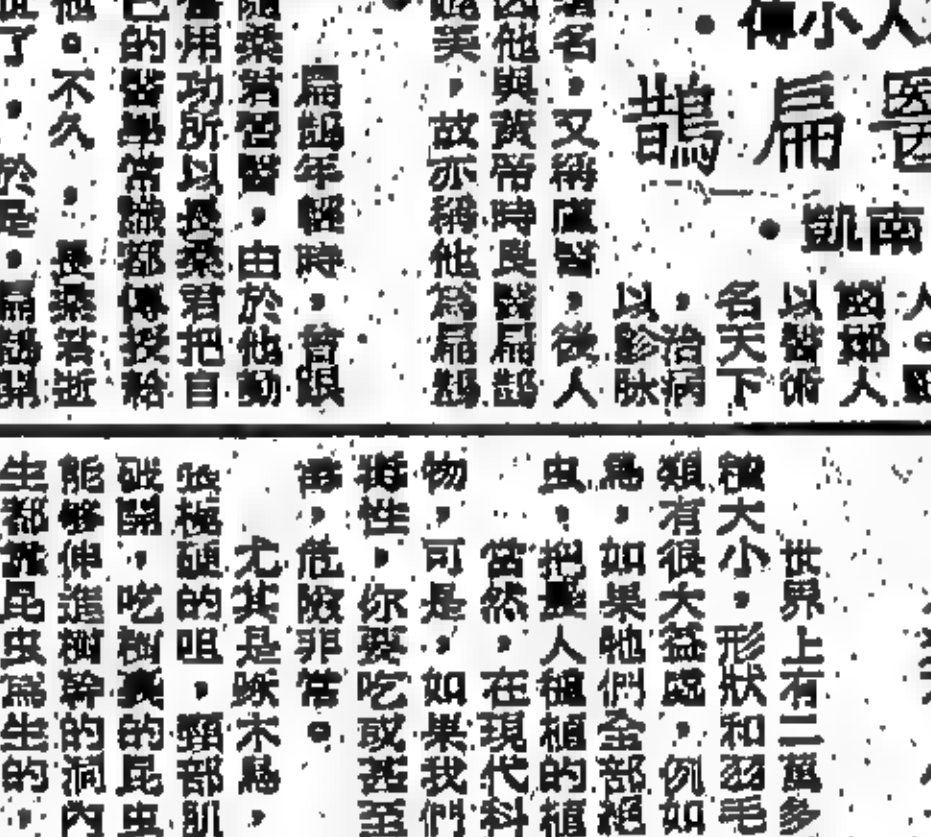 人小傳
醫扁鵲
南凱
人。醫
鄚人
以醫術
名天下
，治病
以診脉
名，又稱盧醫，後人
因他與黃帝時良醫扁鵲
美，故亦稱他爲扁鵲
扁鵲年輕時，曾跟
隨桑君習醫，由於他勤
用功所以長桑君把自
己的醫學常識都傳授給
他。不久，長桑君逝
了，於是，扁鵲
世界上有二萬多
種大小，形狀和羽毛
類有很大益處，例如
鳥，如果牠們全部絕
虫，把人種植的植
當然，在現代科
物，可是，如果我們
性，你要吃或甚至
，危險非常。
尤其是啄木鳥，
極硬的咀，頸部肌
破開，吃樹裏的昆虫
能够伸進樹幹的洞內
生都說昆虫爲生的